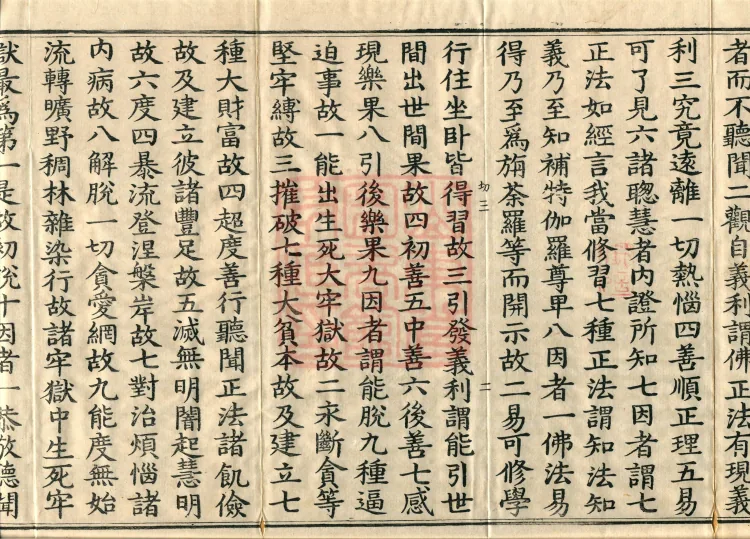 者而不聽聞二觀自義利謂佛正法有現義
利三究竟遠離一切熱惱四善順正理五易
可了見六諸聰慧者內證所知七因者謂七
正法如經言我當修習七種正法謂知法知
義乃至知補特伽羅尊卑八因者一佛法易
得乃至為旃荼羅等而開示故二易可修學
切三 二
行住坐臥皆得習故三引發義利謂能引世
間出世間果故四初善五中善六後善七感
現樂果八引後樂果九因者謂能脫九種逼
迫事故一能出生死大牢獄故二永斷貪等
堅牢縛故三摧破七種大貧本故及建立七
種大財富故四超度善行聽聞正法諸飢儉
故及建立彼諸豐足故五滅無明闇起慧明
故六度四暴流登涅槃岸故七對治煩惱諸
內病故八解脫一切貪愛網故九能度無始
流轉曠野稠林雜染行故諸牢獄中生死牢
獄最為第一是故初說十因者一恭敬德聞